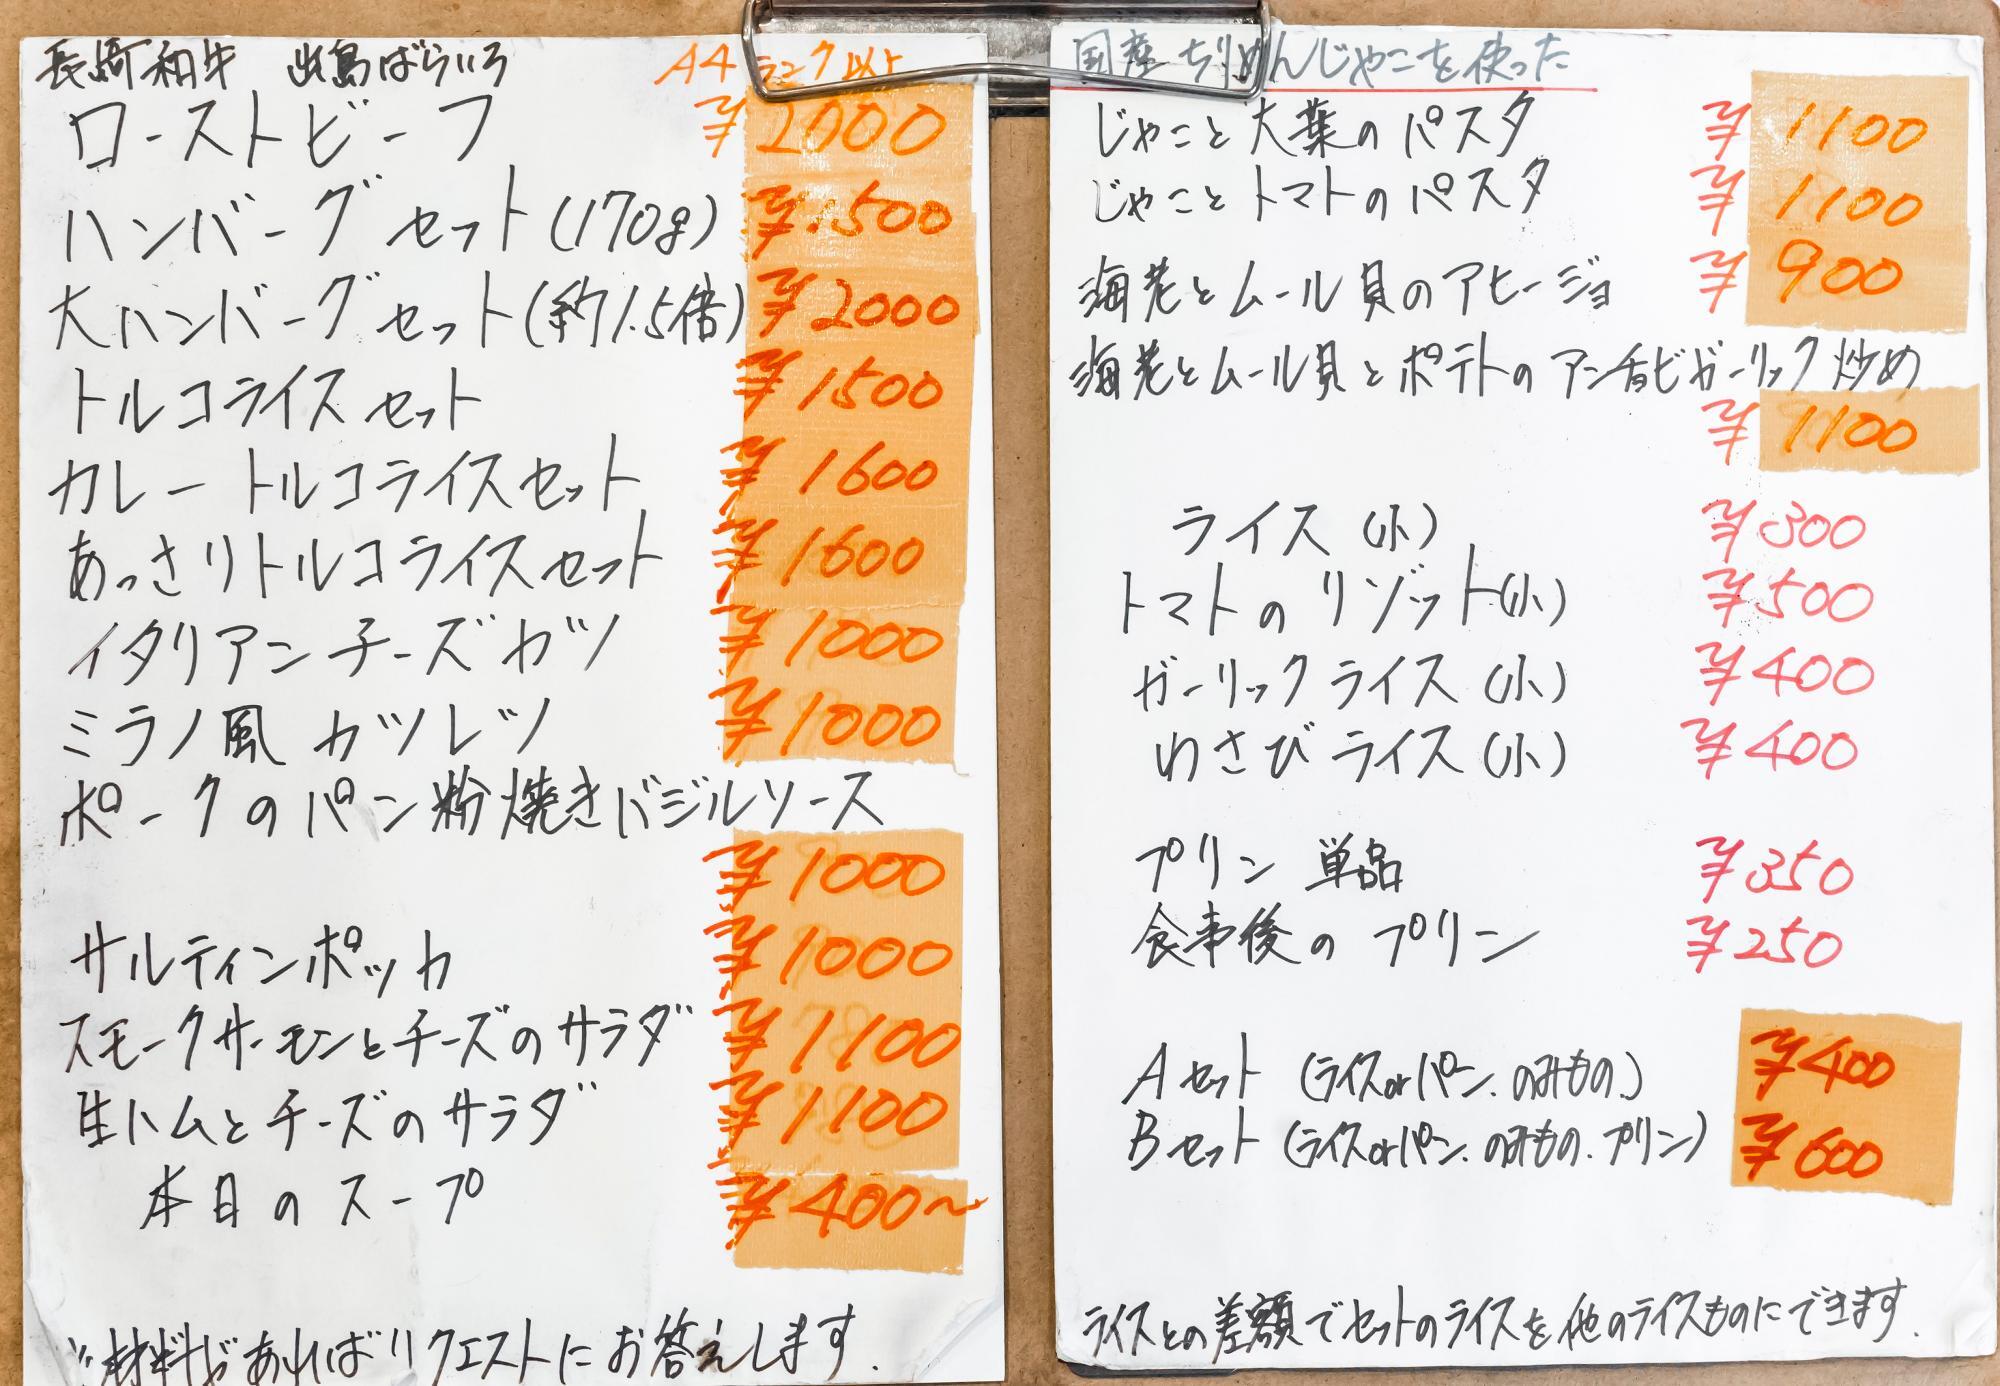 長崎和牛 出島ばらいろ A4ランク以上
ローストビーフ ¥2000
ハンバーグセット(170g) ¥1500
大ハンバーグセット(約1.5倍) ¥2000
トルコライスセット ¥1500
カレートルコライスセット ¥1600
あっさりトルコライスセット ¥1600
イタリアンチーズカツ ¥1000
ミラノ風カツレツ ¥1000
ポークのパン粉焼きバジルソース
¥1000
サルティンボッカ ¥1000
スモークサーモンとチーズのサラダ ¥1100
生ハムとチーズのサラダ ¥1100
本日のスープ ¥400〜
※材料があればリクエストにお答えします.
国産ちりめんじゃこを使った
じゃこと大葉のパスタ ¥1100
じゃことトマトのパスタ ¥1100
海老とムール貝のアヒージョ ¥900
海老とムール貝とポテトのアンチョビガーリック炒め
¥1100
ライス(小) ¥300
トマトのリゾット(小) ¥500
ガーリックライス(小) ¥400
わさびライス(小) ¥400
プリン 単品 ¥350
食事後のプリン ¥250
Aセット(ライスorパン.のみもの.) ¥400
Bセット(ライスorパン.のみもの.プリン) ¥600
ライスとの差額でセットのライスを他のライスものにできます.